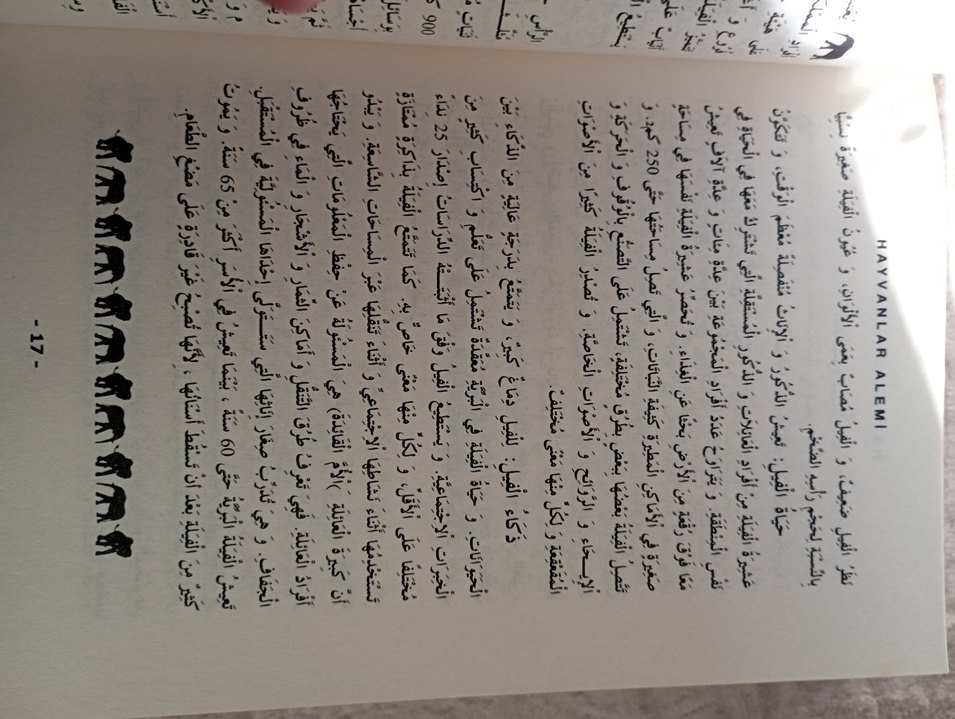 HAYVANLAR ALEMİ
نَظَرُ الْفِيلِ ضَعِيفٌ، وَ الْفِيلُ مُصَابٌ بِعَمَى الْأَلْوَانِ، وَ عُيُونُ الْفِيَلَةِ صَغِيرَةٌ نِسْبِيًّا
بِالنِّسْبَةِ لِحَجْمِ رَأْسِهِ الضَّخْمِ.
حَيَاةُ الْفِيلِ: تَعِيشُ الذُّكُورُ وَ الْإِنَاثُ مُنْفَصِلَةً مُعْظَمَ الْوَقْتِ، وَ تَتَكَوَّنُ
عَشِيرَةُ الْفِيَلَةِ مِنْ أَفْرَادِ الْعَائِلَاتِ وَ الذُّكُورِ الْمُسْتَقِلَّةِ الَّتِي تَشْتَرِكُ مَعَهَا فِي الْحَيَاةِ فِي
نَفْسِ الْمِنْطَقَةِ. وَ يَتَرَاوَحُ عَدَدُ أَفْرَادِ الْمَجْمُوعَةِ بَيْنَ عِدَّةِ مِئَاتٍ وَ عِدَّةِ آلَافٍ تَعِيشُ
مَعًا فَوْقَ رُقْعَةٍ مِنَ الْأَرْضِ بَحْثًا عَنِ الْغِذَاءِ. وَ تَحْصُرُ عَشِيرَةُ الْفِيَلَةِ نَفْسَهَا فِي مِسَاحَةٍ
صَغِيرَةٍ فِي الْأَمَاكِنِ الْمَطِيرَةِ كَثِيفَةِ النَّبَاتَاتِ، وَ الَّتِي تَصِلُ مِسَاحَتُهَا حَتَّى 250 كم٢. وَ
تَتَّصِلُ الْفِيَلَةُ بَعْضُهَا بِبَعْضٍ بِطُرُقٍ مُخْتَلِفَةٍ، تَشْتَمِلُ عَلَى التَّصَنُّعِ بِالْوُقُوفِ وَ الْحَرَكَةِ وَ
الْإِيـحَاءِ وَ الرَّوَائِحِ وَ الْأَصْوَاتِ الْخَاصَّةِ. وَ تُصْدِرُ الْفِيَلَةُ كَثِيرًا مِنَ الْأَصْوَاتِ
الْمُقَعْقِعَةِ وَ لِكُلٍّ مِنْهَا مَعْنًى مُخْتَلِفٌ.
ذَكَاءُ الْفِيلِ: لِلْفِيلِ دِمَاغٌ كَبِيرٌ، وَ يَتَمَتَّعُ بِدَرَجَةٍ عَالِيَةٍ مِنَ الذَّكَاءِ بَيْنَ
الْحَيَوَانَاتِ. وَ حَيَاةُ الْفِيَلَةِ فِي الْبَرِّيَّةِ مُعَقَّدَةٌ تَشْتَمِلُ عَلَى تَعَلُّمٍ وَ اكْتِسَابِ كَثِيرٍ مِنَ
الْخِبَرَاتِ الْاِجْتِمَاعِيَّةِ. وَ يَسْتَطِيعُ الْفِيلُ وَفْقَ مَا أَثْبَتَـتْهُ الدِّرَاسَاتُ إِصْدَارَ 25 نِدَاءً
مُخْتَلِفًا عَلَى الْأَقَلِّ، وَ لِكُلٍّ مِنْهَا مَعْنًى خَاصٌّ بِهِ. كَمَا تَتَمَتَّعُ الْفِيَلَةُ بِذَاكِرَةٍ مُمْتَازَةٍ
تَسْتَخْدِمُهَا أَثْنَاءَ نَشَاطِهَا الْاِجْتِمَاعِيِّ وَ أَثْنَاءَ تَنَقُّلِهَا عَبْرَ الْمِسَاحَاتِ الشَّاسِعَةِ. وَ يَبْدُو
أَنَّ كَبِيرَةَ الْعَائِلَةِ )الْأُمَّ الْقَائِدَةَ( هِيَ الْمَسْئُولَةُ عَنْ حِفْظِ الْمَعْلُومَاتِ الَّتِي يَحْتَاجُهَا
أَفْرَادُ الْعَائِلَةِ، فَهِيَ تَعْرِفُ طُرُقَ التَّنَقُّلِ وَ أَمَاكِنَ الثِّمَارِ وَ الْأَشْجَارِ وَ الْمَاءِ فِي ظُرُوفِ
الْجَفَافِ. وَ هِيَ تُدَرِّبُ صِغَارَ إِنَاثِهَا الَّتِي سَتَـتَوَلَّى إِحْدَاهَا الْمَسْئُولِيَّةَ فِي الْمُسْتَقْبَلِ.
تَعِيشُ الْفِيَلَةُ الْبَرِّيَّةُ حَتَّى 60 سَنَةً، بَيْنَمَا تَعِيشُ فِي الْأَسْرِ أَكْثَرَ مِنْ 65 سَنَةً. وَ يَمُوتُ
كَثِيرٌ مِنَ الْفِيَلَةِ بَعْدَ أَنْ تَسْقُطَ أَسْنَانُهَا، لِأَنَّهَا تُصْبِحُ غَيْرَ قَادِرَةٍ عَلَى مَضْغِ الطَّعَامِ.
- 17 -